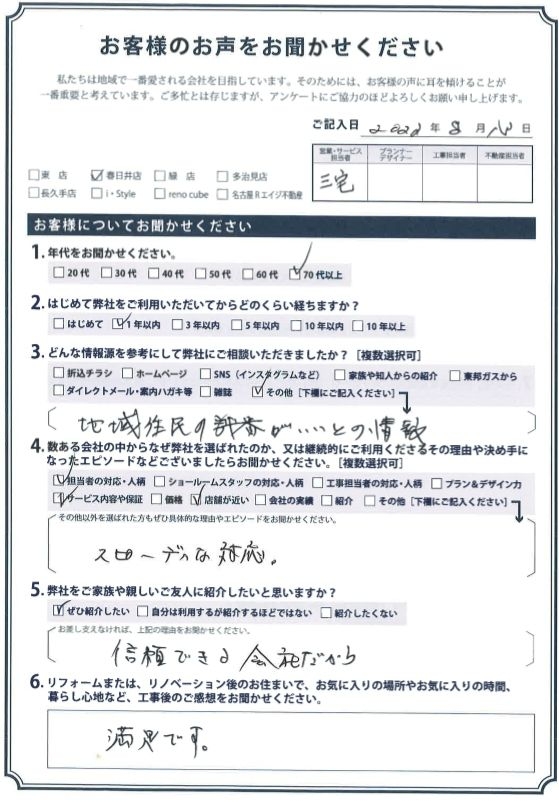 お客様のお声をお聞かせください
私たちは地域で一番愛される会社を目指しています。そのためには、お客様の声に耳を傾けることが
一番重要と考えています。ご多忙とは存じますが、アンケートにご協力のほどよろしくお願い申し上げます。
ご記入日 2022 年 8 月 日
営業・サービス担当者 プランナーデザイナー 工事担当者 不動産担当者
三宅
□東 店 ☑春日井店 □緑 店 □多治見店
□長久手店 □i・Style □reno cube □名古屋Rエイジ不動産
お客様についてお聞かせください
1. 年代をお聞かせください。
□20代 □30代 □40代 □50代 □60代 ☑70代以上
2. はじめて弊社をご利用いただいてからどのくらい経ちますか?
□はじめて ☑1年以内 □3年以内 □5年以内 □10年以内 □10年以上
3. どんな情報源を参考にして弊社にご相談いただきましたか?[複数選択可]
□折込チラシ □ホームページ □SNS(インスタグラムなど) □家族や知人からの紹介 □東邦ガスから
□ダイレクトメール・案内ハガキ等 □雑誌 ☑その他[下欄にご記入ください]
地域住民の評番がいいとの情報
4. 数ある会社の中からなぜ弊社を選ばれたのか、又は継続的にご利用くださるその理由や決め手に
なったエピソードなどございましたらお聞かせください。[複数選択可]
☑担当者の対応・人柄 □ショールームスタッフの対応・人柄 □工事担当者の対応・人柄 □プラン&デザイン力
☑サービス内容や保証 □価格 ☑店舗が近い □会社の実績 □紹介 □その他[下欄にご記入ください]
その他以外を選ばれた方もぜひ具体的な理由やエピソードをお聞かせください。
スピーディな対応。
5. 弊社をご家族や親しいご友人に紹介したいと思いますか?
☑ぜひ紹介したい □自分は利用するが紹介するほどではない □紹介したくない
お差し支えなければ、上記の理由をお聞かせください。
信頼できる会社だから
6. リフォームまたは、リノベーション後のお住まいで、お気に入りの場所やお気に入りの時間、
暮らし心地など、工事後のご感想をお聞かせください。
満足です。